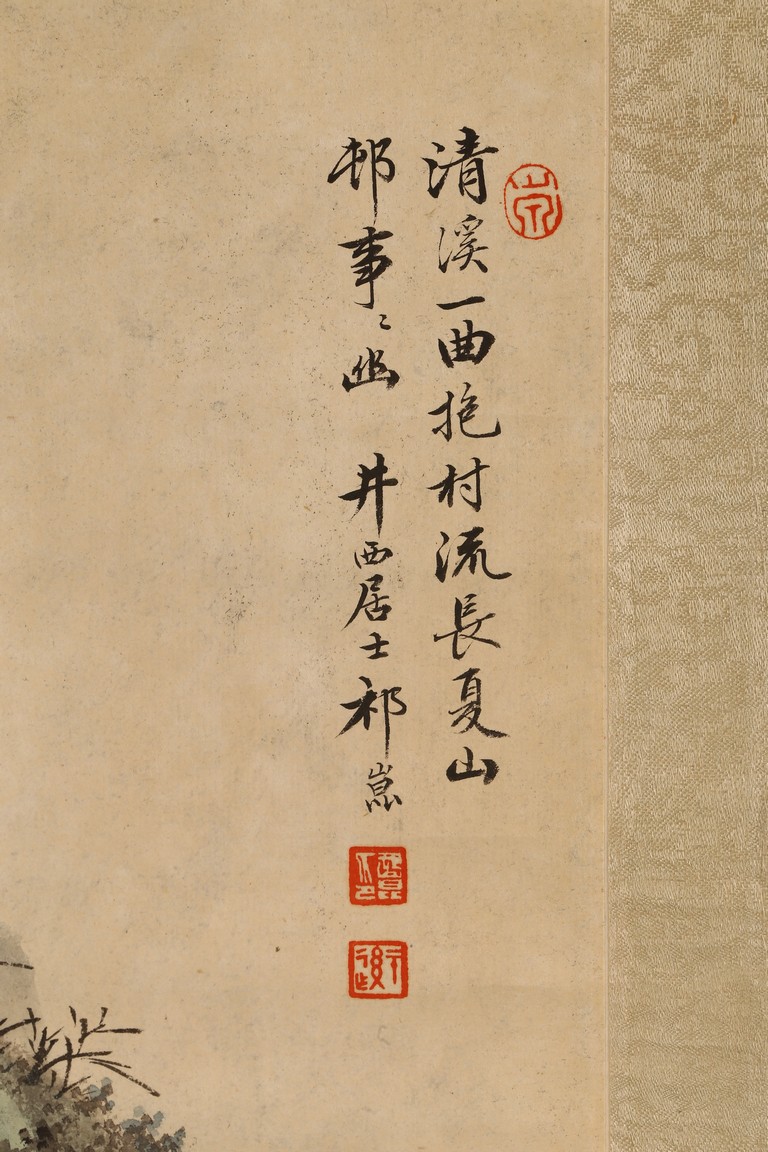 清溪一曲抱村流長夏山
邨事〻幽 井西居士祁崑